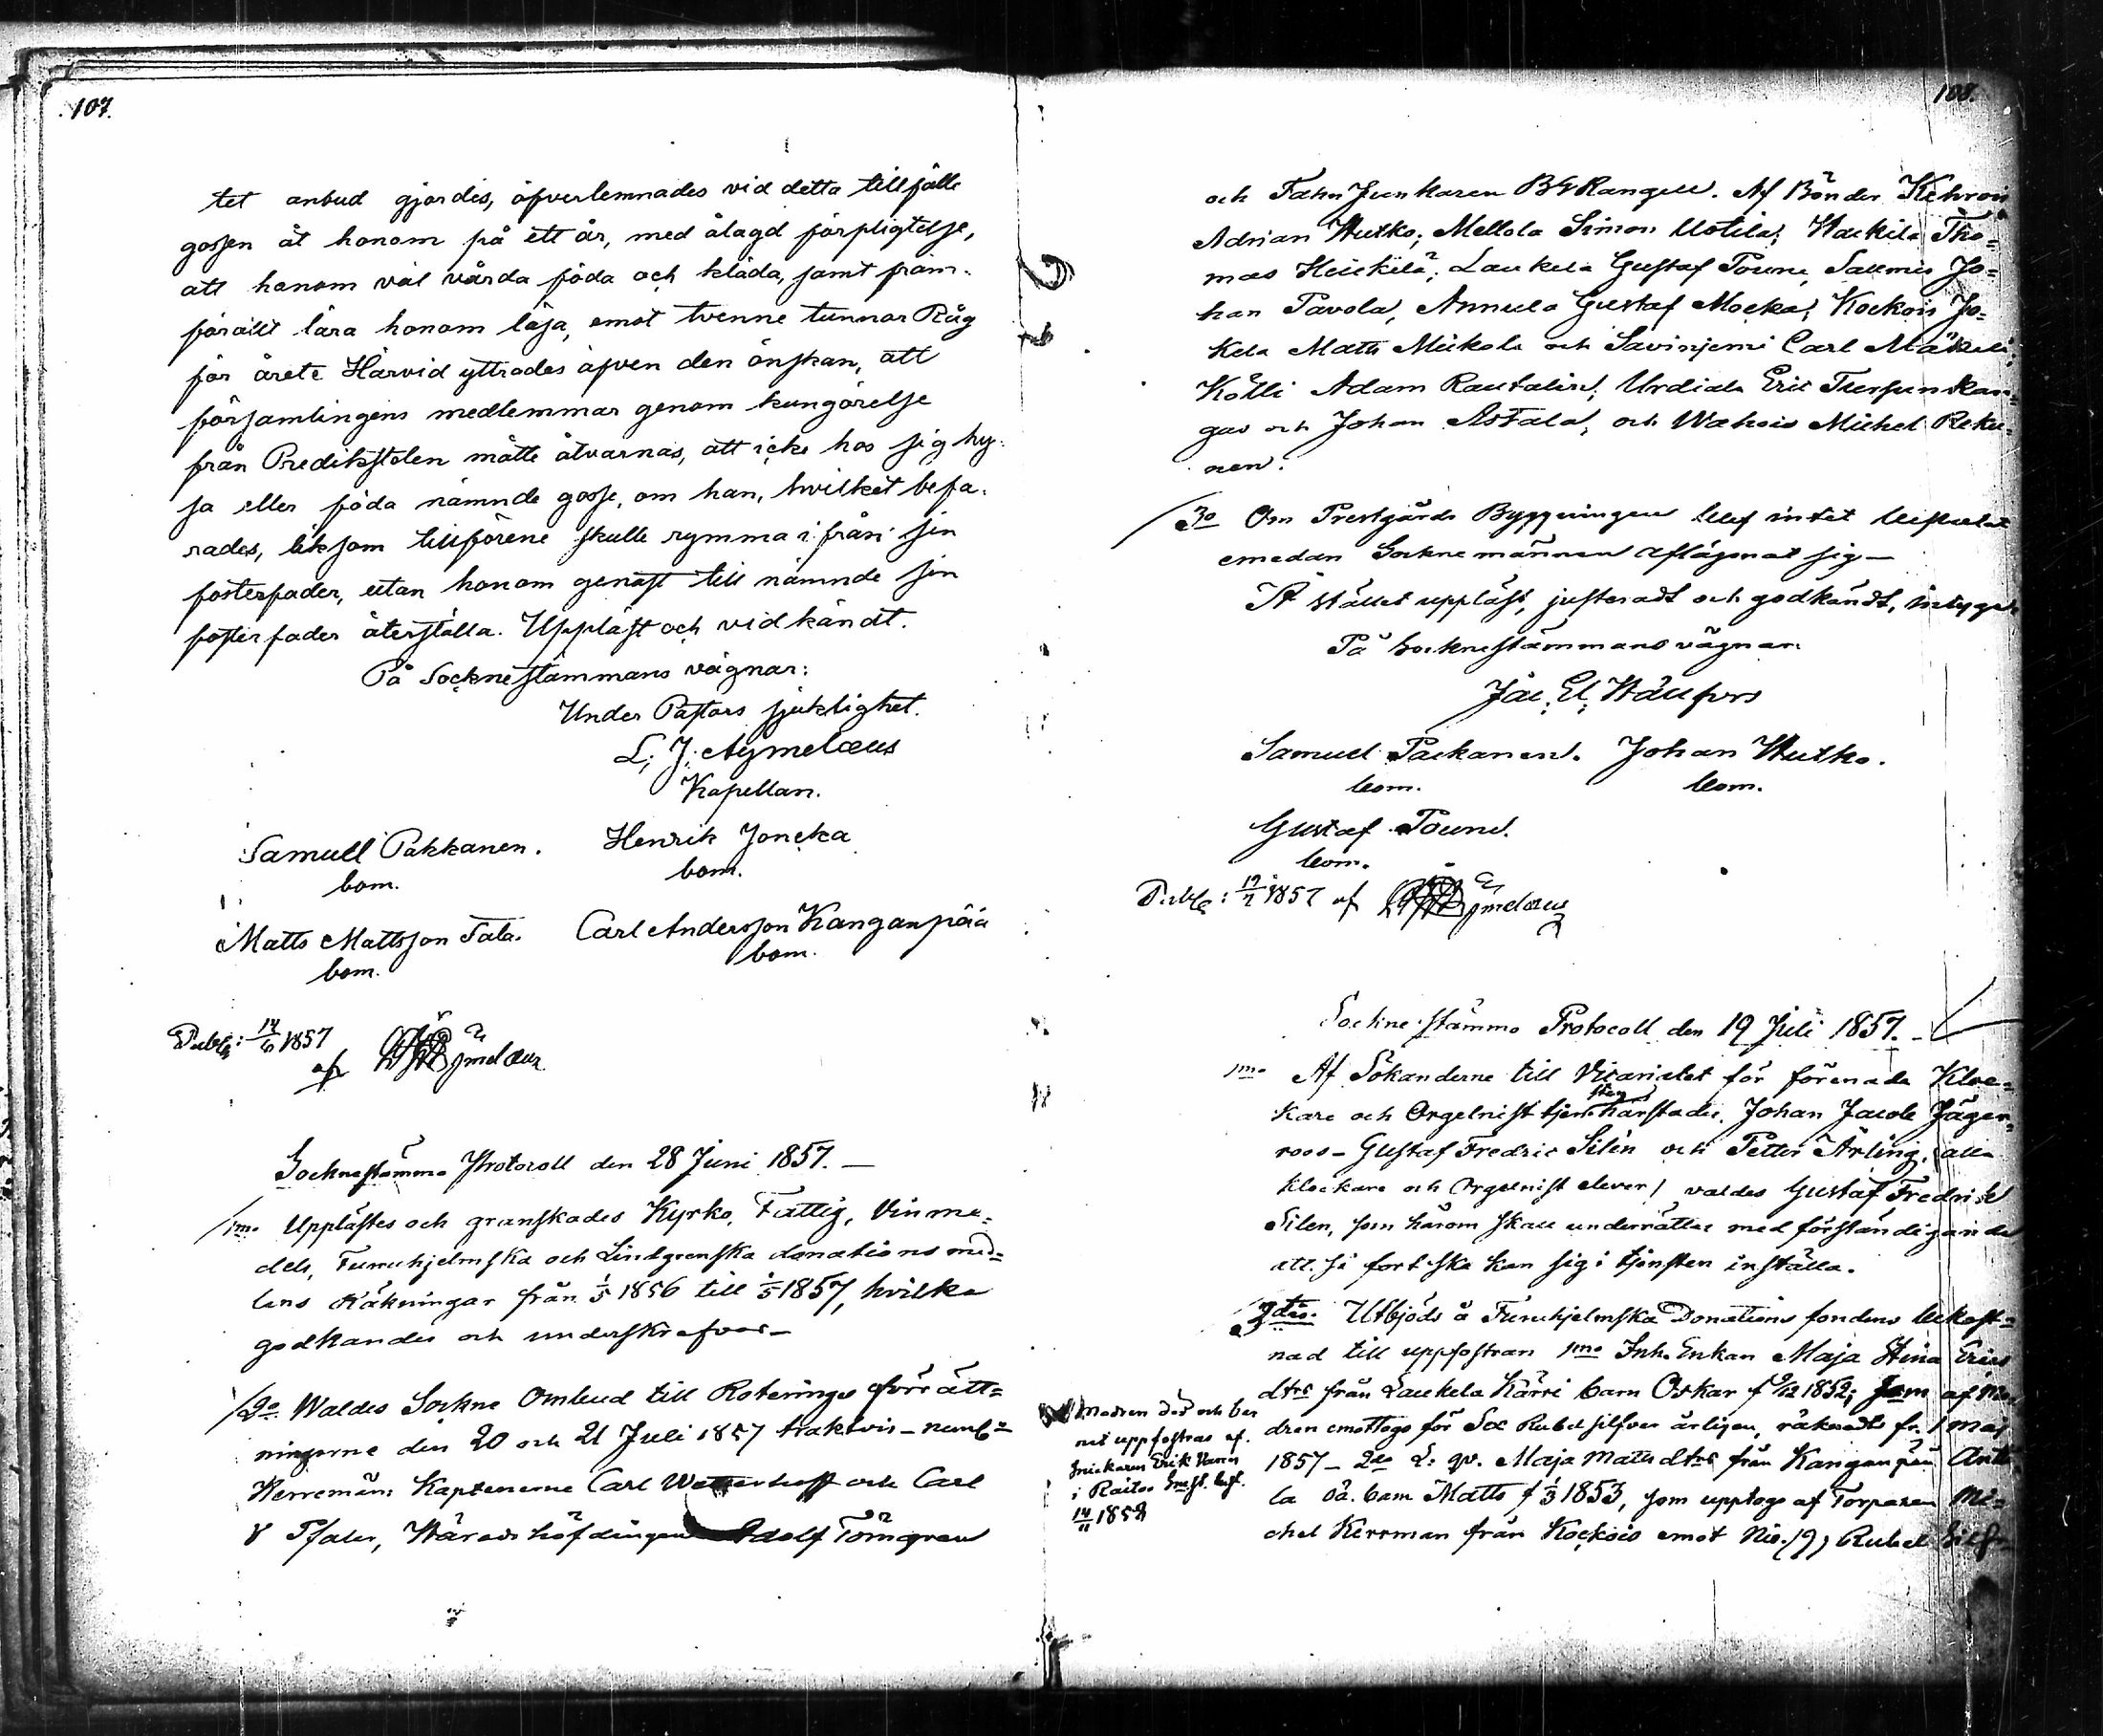 107.
tet anbud gjordes, öfverlemnades vid detta tillfälle
gossen åt honom på ett år, med ålagd förpligtelse,
att honom väl vårda föda och kläda, samt fram-
förallt lära honom läsa, emot tvenne tunnor Råg
för året. Härvid yttrades äfven den önskan, att
församlingens medlemmar genom kungörelse
från Predikstolen måtte åtvarnas, att icke hos sig hy-
sa eller föda nämnde gosse, om han, hvilket befa-
rades, liksom tillförene skulle rymma ifrån sin
fosterfader, utan honom genast till nämnde sin
fosterfader återställa. Uppläst och vidkändt.
På Socknestämmans vägnar:
Under Pastors sjuklighet.
L. J. Aymelæus
Kapellan.
Samuel Pakkanen. Henrik Joncka
bom. bom.
Matts Mattsson Tala. Carl Andersson Kanganpää
bom. bom.
Publ: 14/6 1857
af
Socknestämmo Protocoll den 28 Juni 1857. —
1mo Upplästes och granskades Kyrko, Fattig, Vinme-
dels, Furuhjelmska och Lindgrenska donations med-
lens Räkningar från 1/5 1856 till 1/5 1857, hvilka
godkändes och underskrefvos —
2o Waldes Sockne Ombud till Roterings förrätt-
ningarne den 20 och 21 Juli 1857
Herremän: Kaptenerne Carl och Carl
Häradshöfdingen Adolf Törngren
108.
och Fahnjunkaren Rangell. Af Bönder Kehrois
Adrian Hutko; Mellola Simon Uotila; Hackila Tho-
mas Heickilä; Laukela Gustaf Poune, Sallmis Jo-
han Pavola, Annula Gustaf Mocka; Kockois Jo-
kela Matts Mickola och Savinjemi Carl Mäkelä,
Kölli Adam Rautalin; Urdiala Eric Kan-
gas och Johan Astala, och Wahois Michel Reku-
nen.
3o Om Prestgårds Byggningen blef intet beslutat
emedan Sockne männen aflägsnat sig —
På stället uppläst, justeradt och godkändt, intygar
På Socknestämmans vägnar
Jac. El. Wällfors
Samuel Packanen. Johan Hutko.
bom. bom.
Gustaf Poune.
bom.
Publ: 12/7 1857 af
Sockne stämmo Protocoll den 19 Juli 1857. —
1mo Af Sökanderne till Vicariatet för förenade Kloc-
kare och Orgelnist Johan Jacob Jäger-
roos — Gustaf Fredric Silén och Petter Ärling, alla
klockare och Orgelnist elever/ valdes Gustaf Fredrik
Silen, som härom skall underrättas med förständigande
att så fort ske kan sig i tjensten inställa.
2do. Utbjöds å Furuhjelmska Donations fondens bekost-
nad till uppfostran 1mo Inh. Enkan Maja Stina Erics
dtrs från Laukela Kärri barn Oskar f 9/12 1852; som af Mo-
dren emottogs för Sex Rubel silfver årligen, räknadt fr. 1 Maj
1857 — 2do L: qv. Maja Matts dtrs från Kanganpää Antti-
la oä. barn Matts f 1/3 1853, som upptogs af Torparen Mi-
chel Kerrman från Kockois emot Nio (9) Rubel Silf-
Modren död och bar
net uppfostras af
Snickaren Erik
i Raitos
14/11 1858